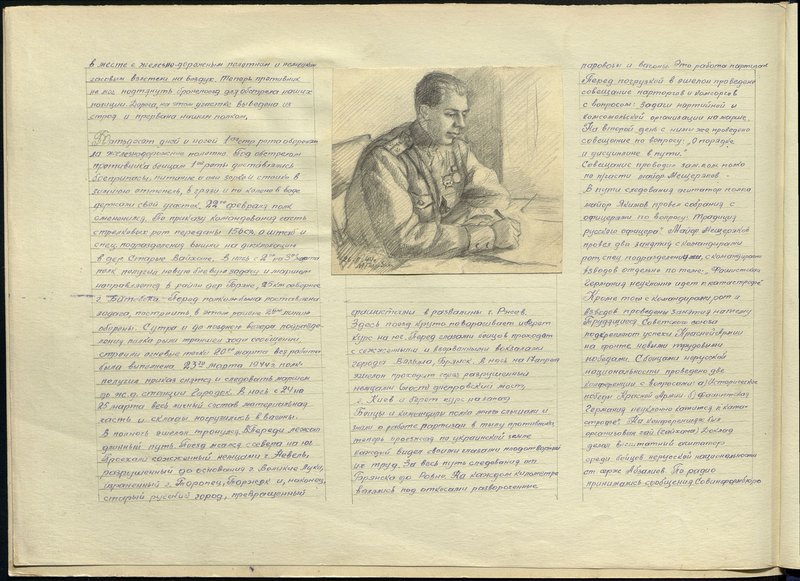 в месте с железно-дорожным полотном и
взлетели на воздух. Теперь противник
не мог подтянуть бронепоезд для обстрела наших
позиций. Дорога, на этом участке выведена из
строя и прервана нашим полком.
дней и ночей 1ая стр. рота обороняла
железнодорожное полотно. Под обстрелом
противника бойцам 1ой роты доставлялись
боеприпасы, питание а они зорко и стойко в
зимнюю оттепель, в грязи и по колено в воде
держали свой участок. 22го февраля полк
сменился. По приказу командования часть
стрелковых рот переданы 156сп, а штаб и
спец. подразделения вышли на дислокацию
в дер. Старые. В ночь с 2го на 3е марта
полк получил новую боевую задачу и маршем
направляется в район дер. 25 км севернее
г. Витебска. Перед полком была поставлена
задача, построить в этом районе 2ую линию
обороны. С утра и до позднего вечера подразде-
ления полка рыли траншеи хода сообщения,
строили огневые точки 20го марта вся работа
была выполнена. 23го марта 1944 г. полк
получил приказ сняться и следовать маршем
до ж.д. станции Городок. В ночь с 24 на
25 марта весь личный состав материальная
часть и склады погрузились в вагоны.
В полночь эшелон тронулся. Впереди лежал
длинный путь. Поезд мчался с севера на юг.
Проехали сожженный немцами г. Невель,
разрушенный до основания г. Великие Луки,
г. Торопец, Торжок и, наконец,
старый русский город, превращенный
фашистами в развалины г. Ржев.
Здесь поезд круто поворачивает и берет
курс на юг. Перед глазами бойцов проходят
с сожженными и взорванными вокзалами
города Вязьма, Брянск. В ночь на 1 апреля
эшелон проходит через разрушенный
немцами мост,
г. Киев и берет курс на запад.
Бойцы и командиры полка много слышали и
знали о работе партизан в тылу противника,
теперь проезжая по украинской земле
каждый видел своими глазами плодотворный
их труд. За весь путь следования от
Брянска до Ровно. На каждом километре
валялись под откосами развороченные
паровозы и вагоны. Это работа партизан.
Перед погрузкой в эшелон проведено
совещание парторгов и комсоргов
с вопросом: Задачи партийной и
комсомольской организации на марше.
На второй день с ними же проведено
совещание по вопросу: „О порядке
и дисциплине в пути."
Совещание проводил зам. ком. полка
по п/части майор Мещеряков -
В пути следования агитатор полка
майор Якимов провел собрания с
офицерами по вопросу: „Традиции
русского офицера." Майор Мещеряков
провел два занятия с командирами
рот, спец. подразделений, с командирами
взводов отдельно по теме: „Фашистская
Германия неуклонно идет к катастрофе."
Кроме того с командирами рот и
взводов проведены занятия на тему
Трудящиеся Советского союза
подкрепляют успехи Красной Армии
на фронте новыми трудовыми
победами. С бойцами нерусской
национальности проведено две
конференции с вопросами: а) Исторические
победы Красной Армии б) Фашистская
Германия неуклонно катится к ката-
строфе. На конференциях был
организован чай. Доклад
делал внештатный агитатор
среди бойцов нерусской национальности
ст. срж. По радио
принимались сообщения Совинформбюро